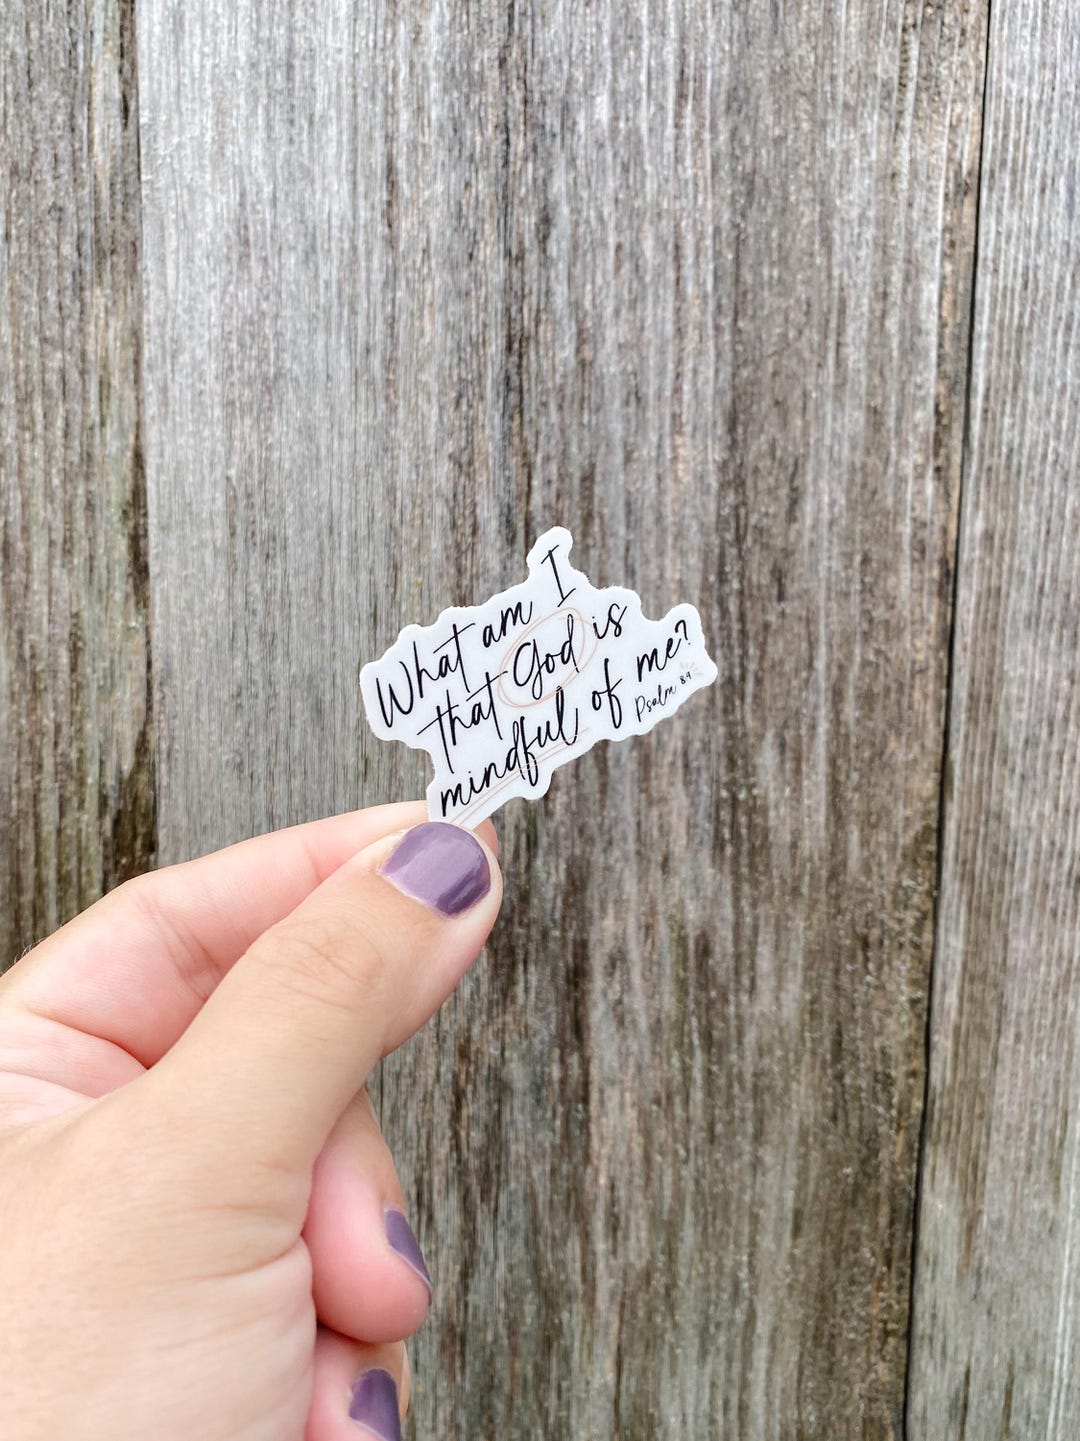 What am I
that God is
mindful of me?
Psalm 89